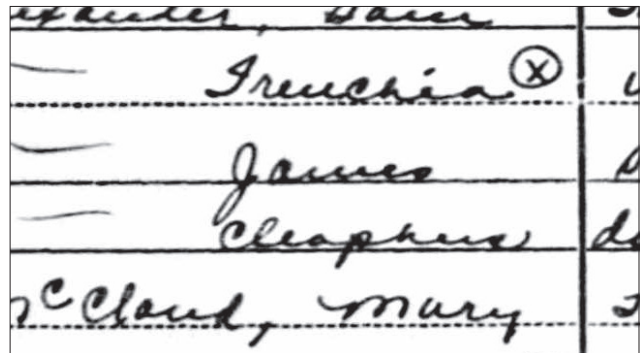 Sam
— Frenchia ⓧ
— James
— Cleaphus
McCloud, Mary